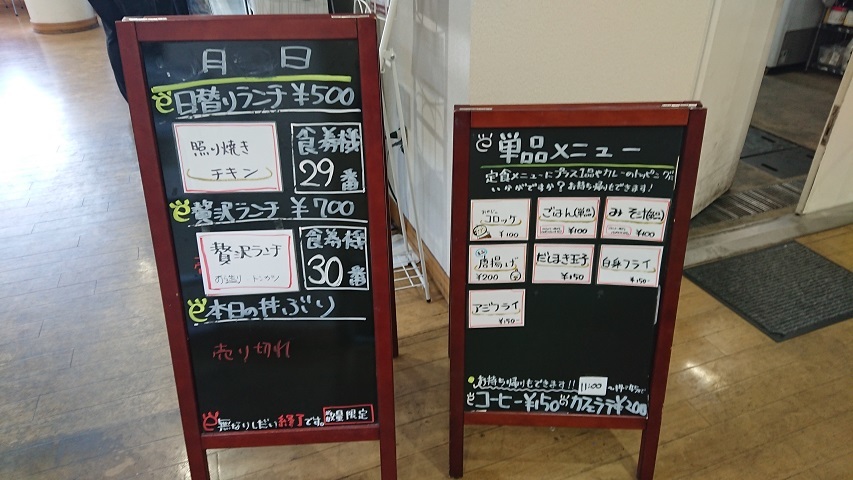 月 日
日替りランチ ¥500
照り焼き
チキン
食券機
29番
贅沢ランチ ¥700
贅沢ランチ
お造り トンカツ
食券機
30番
本日の丼ぶり
売り切れ
無なりしだい終了です。
数量限定
単品メニュー
定食メニューにプラス1品やカレーのトッピングに
いかがですか?お持ち帰りもできます!
コロッケ
¥100
ごはん(単品)
¥100
みそ汁(単品)
¥100
唐揚げ
¥200
だしまき玉子
¥150
白身フライ
¥150-
アジフライ
¥150-
お持ち帰りもできます!! 11:00
コーヒー¥150 カフェラテ¥200